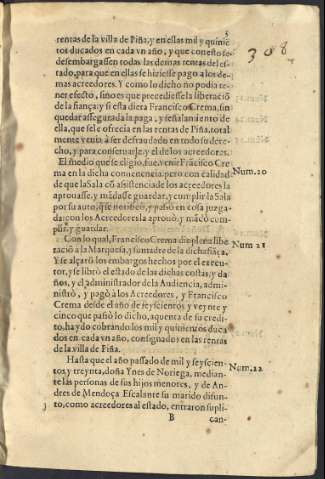 5
308
rentas de la villa de Piña, y en ellas mil y quiniẽ
tos ducados en cada vn año, y que con esto se
desembargassen todas las demas rentas del es-
tado, para que en ellas se hiziesse pago a los de-
mas acreedores. Y como lo dicho no podia te-
ner efecto, sino es que precediesse la liberaciõ
de la fiança y si esta diera Francisco Crema, sin
quedar assegurada la paga, y señalamiento de
ella, que se le ofrecia en las rentas de Piña, total
mente venia à ser defraudado en todo su dere-
cho, y para conseruarle, y el de los acreedores.
El medio que se eligio, fue, venir Frãcisco Cre
ma en la dicha conueniencia, pero con calidad
de que la Sala cõ asistencia de los acreedores la
aprouasse, y mãdasse guardar, y cumplir la Sala
por su auto, que notificò, y passò en cosa juzga-
da: con los Acreedores la aprouò, y mãdò com
plir, y guardar.
Num. 20
Con lo qual, Francisco Crema dio plena libe
raciò a la Marquesa, y su madre de la dicha fiãça.
Y se alçarõ los embargos hechos por el execu-
tor, y se librò el estado de las dichas costas, y da
ños, y el administrador de la Audiencia, admi-
nistrò, y pagò a los Acreedores, y Francisco
Crema desde el año de seyscientos y veynte y
cinco que passò lo dicho, a quenta de su credi-
to, ha ydo cobrando los mil y quinientos duca
dos en cada vn año, consignados en las rentas
de la villa de Piña.
Num 21
Hasta que el año passado de mil y seyscien-
tos y treynta, doña Ynes de Noriega, median-
te las personas de sus hijos menores, y de An-
dres de Mendoça Escalante su marido difun-
to, como acreedores al estado, entraron supli-
Num. 22
B
can-